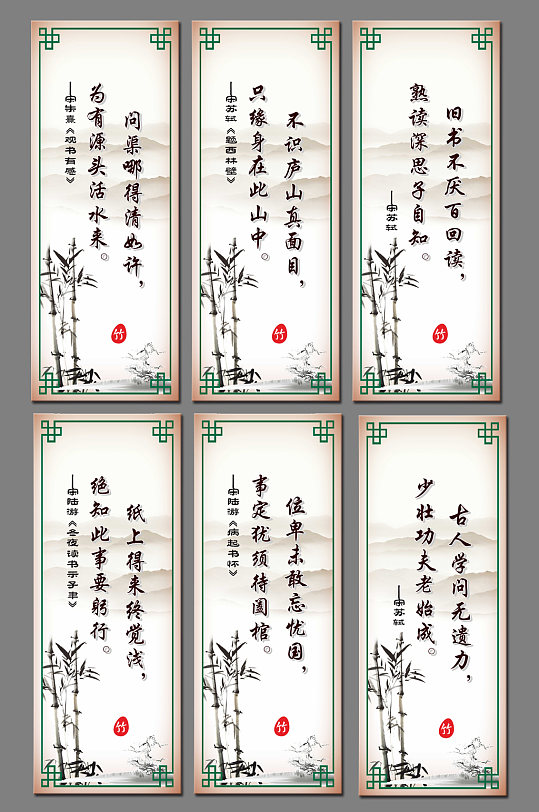 问渠哪得清如许，
为有源头活水来。
——宋朱熹《观书有感》
竹
不识庐山真面目，
只缘身在此山中。
——宋苏轼《题西林壁》
竹
旧书不厌百回读，
熟读深思子自知。
——宋苏轼
竹
纸上得来终觉浅，
绝知此事要躬行。
——宋陆游《冬夜读书示子聿》
竹
位卑未敢忘忧国，
事定犹须待阖棺。
——宋陆游《病起书怀》
竹
古人学问无遗力，
少壮功夫老始成。
——宋苏轼
竹